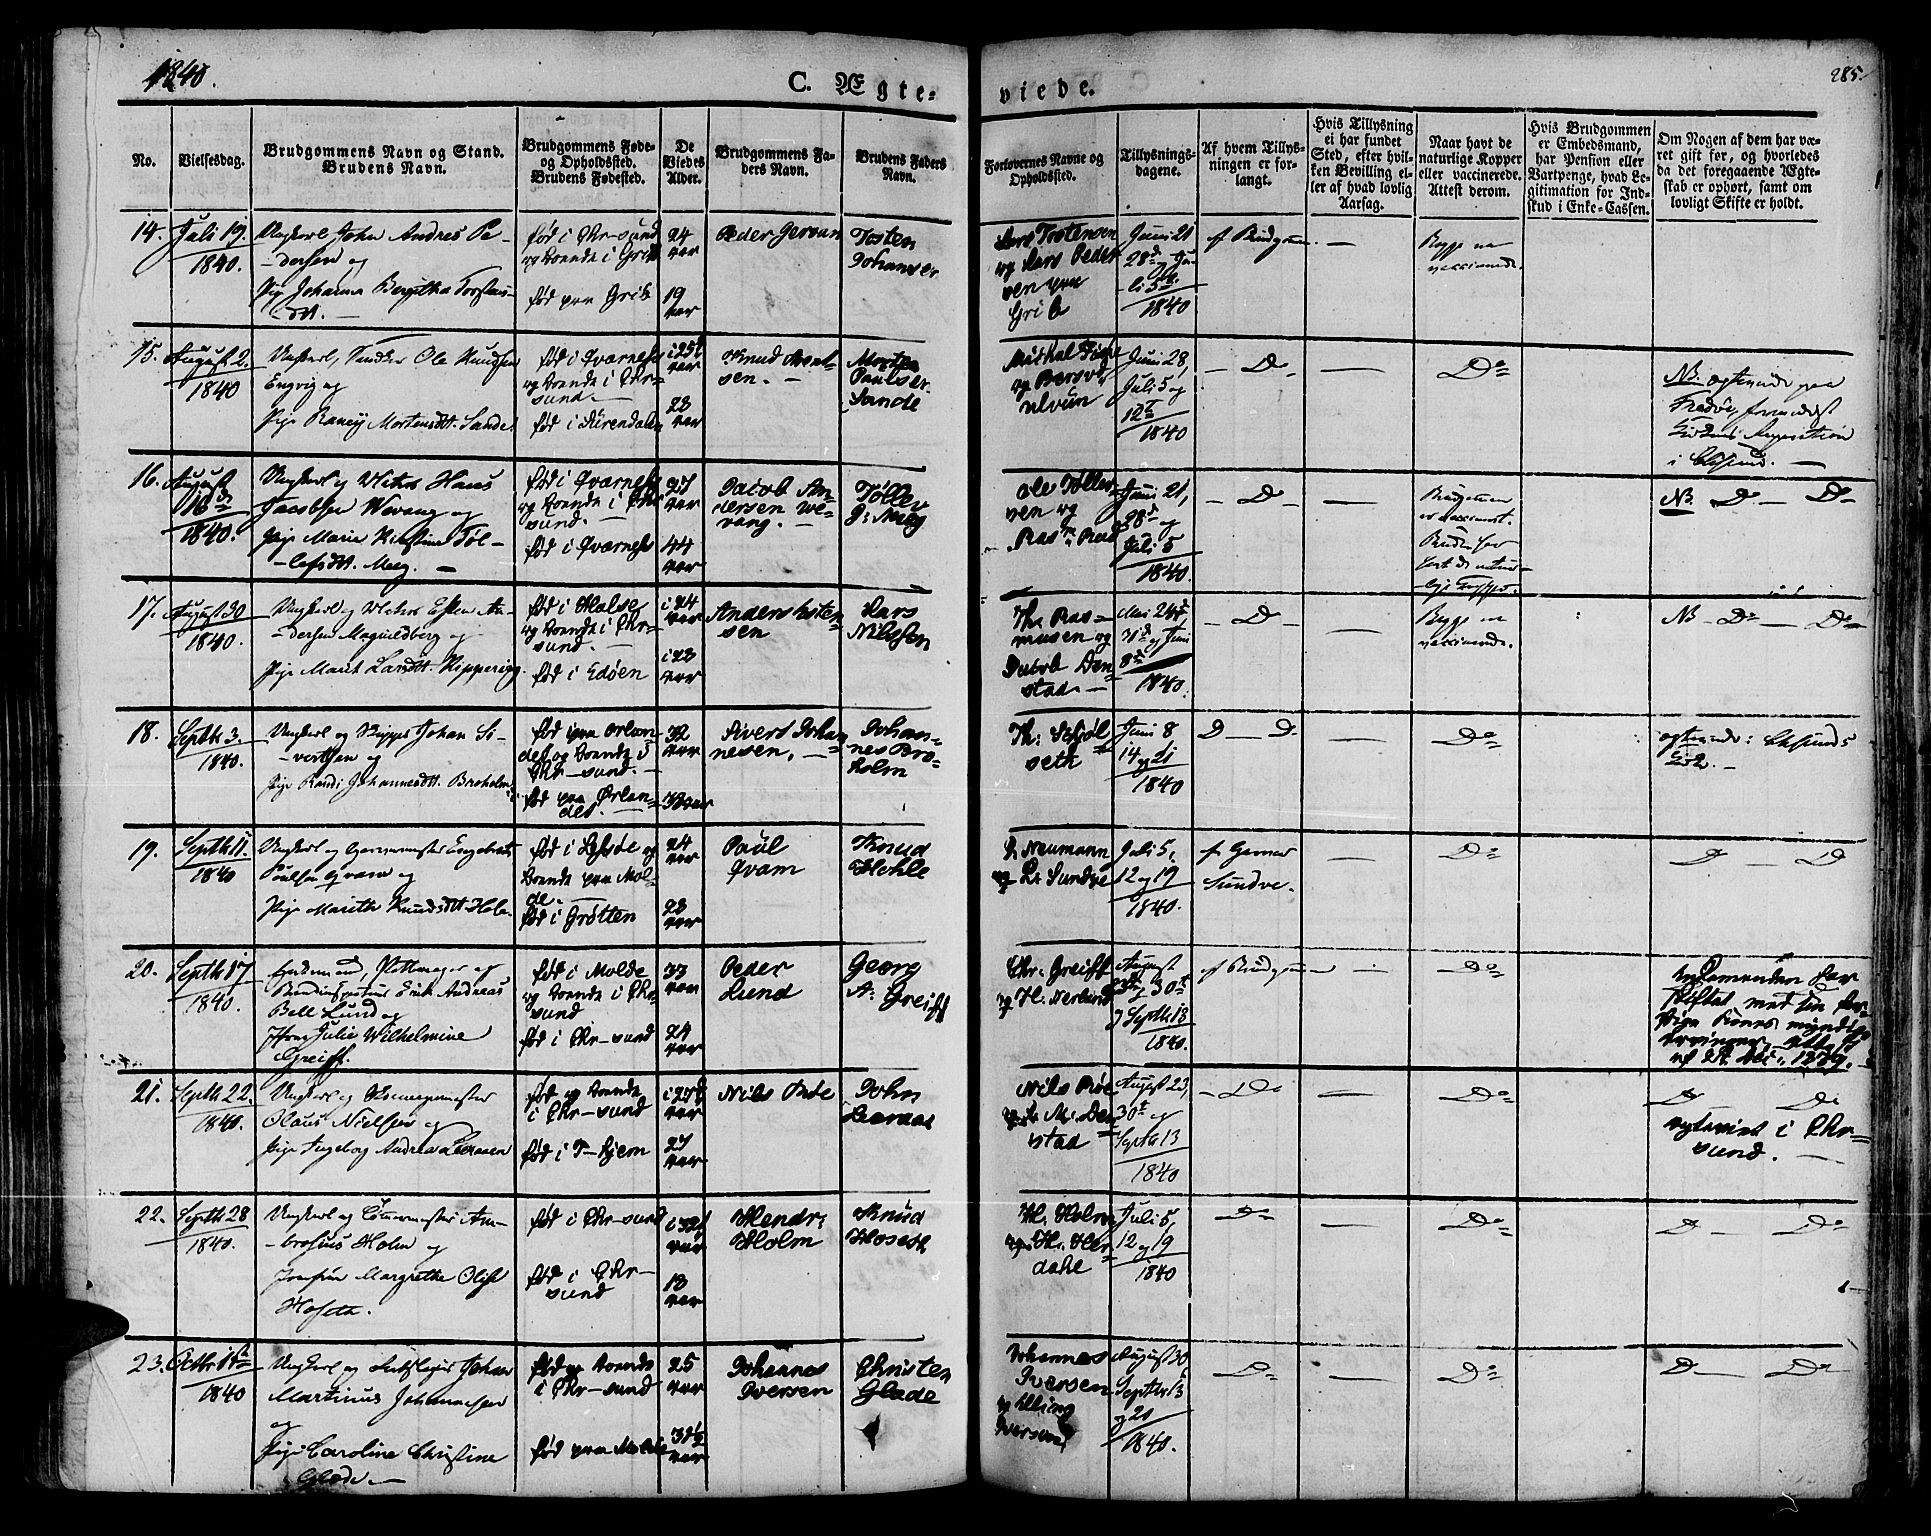 1840.
C. Ægte-
viede.
285.
No.
Vielsesdag.
Brudgommens Navn og Stand.
Brudens Navn.
Brudgommens Føde-
og Opholdssted.
Brudens Fødested.
De
Viedes
Alder.
Brudgommens Fa-
ders Navn.
Brudens Faders
Navn.
Forlovernes Navne og
Opholdssted.
Tillysnings-
dagene.
Af hvem Tillys-
ningen er for-
langt.
Hvis Tillysning
ei har fundet
Sted, efter hvil-
ken Bevilling el-
ler af hvad lovlig
Aarsag.
Naar havt de
naturlige Kopper
eller vaccinerede.
Attest derom.
Hvis Brudgommen
er Embedsmand,
har Pension eller
Vartpenge, hvad Le-
gitimation for Ind-
skud i Enke-Cassen.
Om Nogen af dem har væ-
ret gift før, og hvorledes
da det foregaaende Ægte-
skab er ophørt, samt om
lovligt Skifte er holdt.
14.
Juli 19.
1840.
Ungkarl John Andres Pe-
dersen og
Pige Johanna Bergitha Torstens-
dtt.
fød i Chr-sund
og boende i Grib
fød paa Grib
24
aar
19
aar
Peder Iversen
Tosten
Johansen
Lars Tostensen
og Lars Peder
sen paa
Grib
Juni 21
28de og Ju-
li 5te
1840
af Brudgom.
Begge ere
vaccinerede.
15.
August 2.
1840
Ungkarl, Ole Knudsen
Engvig og
Pige Raney Mortensdtt. Sande.
fød i Qværnes
og boende i Chr-
sund.
fød i Sürendalen
i 25
aar
23
aar
Knud
sen.
Morten
Paulsen
Sande
og
Juni 28,
Juli 5 og
12te
1840
D
Do
NB. ægteviede paa
i Chrsund.
16.
August
16de
1840.
Ungkarl og Hans
Jacobsen Wevang og
Pige Marie Kirstine Tøl-
lefsdtt. Meeg.
fød i Qværnes
og boende i Chr
sund.
fød i Qværnes
27
aar
44
aar
Jacob An-
dersen We-
vang.
Tøllev
J. Meeg
Ole Tøller-
sen og
Juni 21,
28de og
Juli 5
1840.
D
Brudgommen
er vaccineret.
Bruden har
havt de natur-
lige Kopper.
NB. D D
17.
August 30
1840.
Ungkarl og Esten An-
dersen Magnildberg og
Pige Marit Larsdtt.
fød i Halse
og boende i Chr-
sund.
fød i Edøen
i 24
aar
i 23
aar
Anders Esten-
sen
Lars
Nilssen
Th: Ras-
mussen og
Jacob Den-
stad.
Mai 24de
31te og Juni
8de
1840.
D
Begge ere
vaccinerede.
NB Do Do
18.
Septbr 3.
1840.
Ungkarl og Skipper Johan Si-
vertsen og
Pige Randi Johannesdtt. Broholm
fød paa Ørlan-
det og boende i
Chr-sund.
fød paa Ørlan-
det.
32
aar
32 aar
Sivert Johan
nesen.
Johan-
nes Bro-
holm
Juni 8
14 og 21
1840
D D
Do
ægteviede i Chrsunds
Kirke.
19.
Septbr 11.
1840
Ungkarl og Garvermester Engebret
Poulsen Qvam og
Pige Marith Knudsdtt Hole.
fød i Lesjø og
boende paa Mol-
de.
fød i Grøtten
24
aar
23
aar
Paül
Qvam
Knud
Hohle
Neumann
og Sundve
Juli 5,
12 og 19
1840.
af Garver
Sundve.
Do
D D
20.
Septbr 17
1840.
Enkemand, Pottemager og
Erik Andreas
Bell Lund og
Jomf. Julie Wilhelmine
Greiff.
fød i Molde
og boende i Chr-
sund
fød i Chr-sund
33
aar
24
aar
Peder
Lund
Georg
A: Greiff
Chr: Greiff
og H. Nerlund
August
23de, 30te
og Septbr 13
1840.
af Brudgommen
Do
Enkemanden har
skiftet med sin for-
rige Kones myndige
Arvinger,
af 21 Dec. 1839.
21.
Septbr 22.
1840.
Ungkarl og
Olaus Nielsen og
Pige Ingeborg Andrea Leeraaen
fød og boende
i Chr-sund
fød i T-hjem
i 27
aar
27
aar
Nils Røe
John
Leeraae
Nils Røe
og M: Den-
stad
August 23,
30te og
Septbr 13
1840
Do
Do
D Do
ægteviet i Chr-
sund.
22.
Septbr 28
1840.
Ungkarl og Tømmermester Am-
brosius Holm og
Jomfru Margrethe Olise
Hoseth.
fød i Chr-sund
fød i Chr-
sund
i 32
aar
18
aar
Hendr:
Holm
Knud
Hoseth
H. Holm
og H. Her-
dahl
Juli 5,
12 og 19
1840
Do
Do
D Do
23.
Octbr
1840
Ungkarl og Johan
Martinus Johannesen
og
Pige Caroline Christine
Glade.
fød og boende
i Chr-sund
fød paa Molde
25
aar
31½
aar
Johannes
Iversen
Christen
Glade
Johannes
Iversen
og Elling
Iversen
August 30
Septbr 13
og 21
1840.
D
Do
D Do